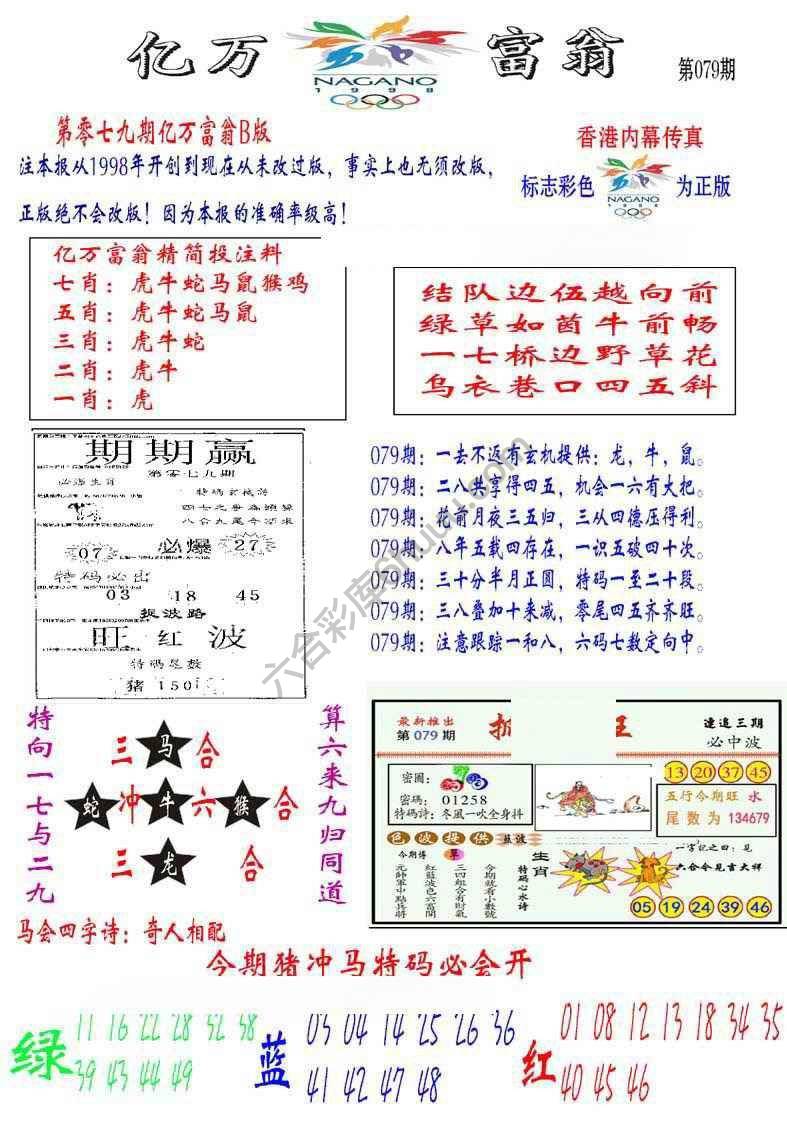 亿万富翁
NAGANO
1998
第079期
第零七九期亿万富翁B版
香港内幕传真
注本报从1998年开创到现在从未改过版，事实上也无须改版，
标志彩色
NAGANO
1998
为正版
正版绝不会改版！因为本报的准确率级高！
亿万富翁精简投注料
七肖：虎牛蛇马鼠猴鸡
五肖：虎牛蛇马鼠
三肖：虎牛蛇
二肖：虎牛
一肖：虎
结队边伍越向前
绿草如茵牛前畅
一七桥边野草花
乌衣巷口四五斜
期期赢
第零七九期
必爆
07
27
特码必出
03 18 45
捉波路
旺红波
特码尾数
猪 150
079期：一去不返有玄机提供：龙，牛，鼠。
079期：二八共享得四五，机会一六有大把。
079期：花前月夜三五归，三从四德压得利。
079期：八年五载四存在，一识五破四十次。
079期：三十分半月正圆，特码一至二十段。
079期：三八叠加十来减，零尾四五齐齐旺。
079期：注意跟踪一和八，六码七数定向中。
六合彩库6huuu.com
特向一七与二九
三 马 合
蛇 冲 牛 六 猴 合
三 龙 合
算六来九归同道
最新推出
第079期
王
連追三期
必中波
密圈：
密碼：01258
特碼詩：冬風一吹全身抖
13 20 37 45
五行今期旺 水
尾數为 134679
色波提供 藍波
今期博 草
元帥軍中點兵將
紅藍波色六當開
三四組合有財氣
今期就看小數號
特码心水诗
生肖
一字記之曰：見
六合令見吉大祥
05 19 24 39 46
马会四字诗：奇人相配
今期猪冲马特码必会开
绿
11 16 22 28 32 38
39 43 44 49
蓝
03 04 14 25 26 36
41 42 47 48
红
01 08 12 13 18 34 35
40 45 46